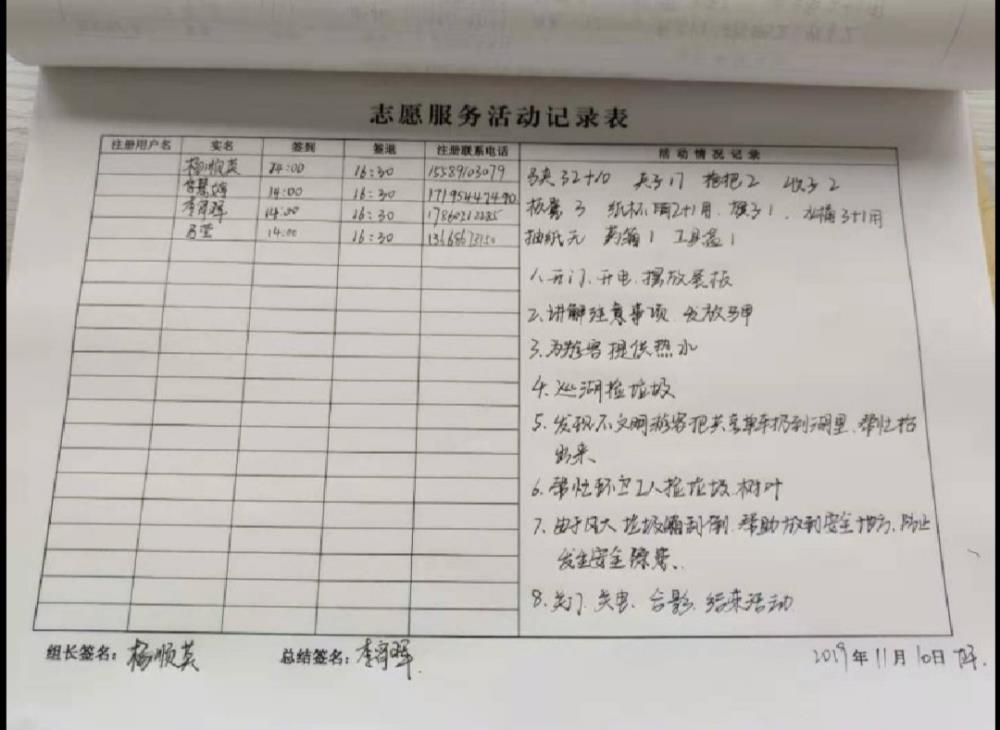 志愿服务活动记录表
注册用户名 实名 签到 签退 注册联系电话 活动情况记录
杨顺英 14:00 16:30 15589103079
14:00 16:30
14:00 16:30
14:00 16:30
马夹32+10 夹子17 拖把2 收子2
板凳3 纸杯 旗子1. 水桶3+1用
抽纸无 药箱1 工具盒1
1.开门.开电.摆放展板
2.讲解注意事项.发放马甲
3.为游客提供热水
4.巡湖捡垃圾
5.发现不文明游客把共享单车扔到湖里.帮忙抬
出来.
6.帮忙环卫工人捡垃圾.树叶
7.由于风大垃圾桶刮倒.帮助放到安全地方.防止
发生安全隐患.
8.关门.关电.合影.结束活动
组长签名：杨顺英 总结签名：李 2019年11月10日 下午.